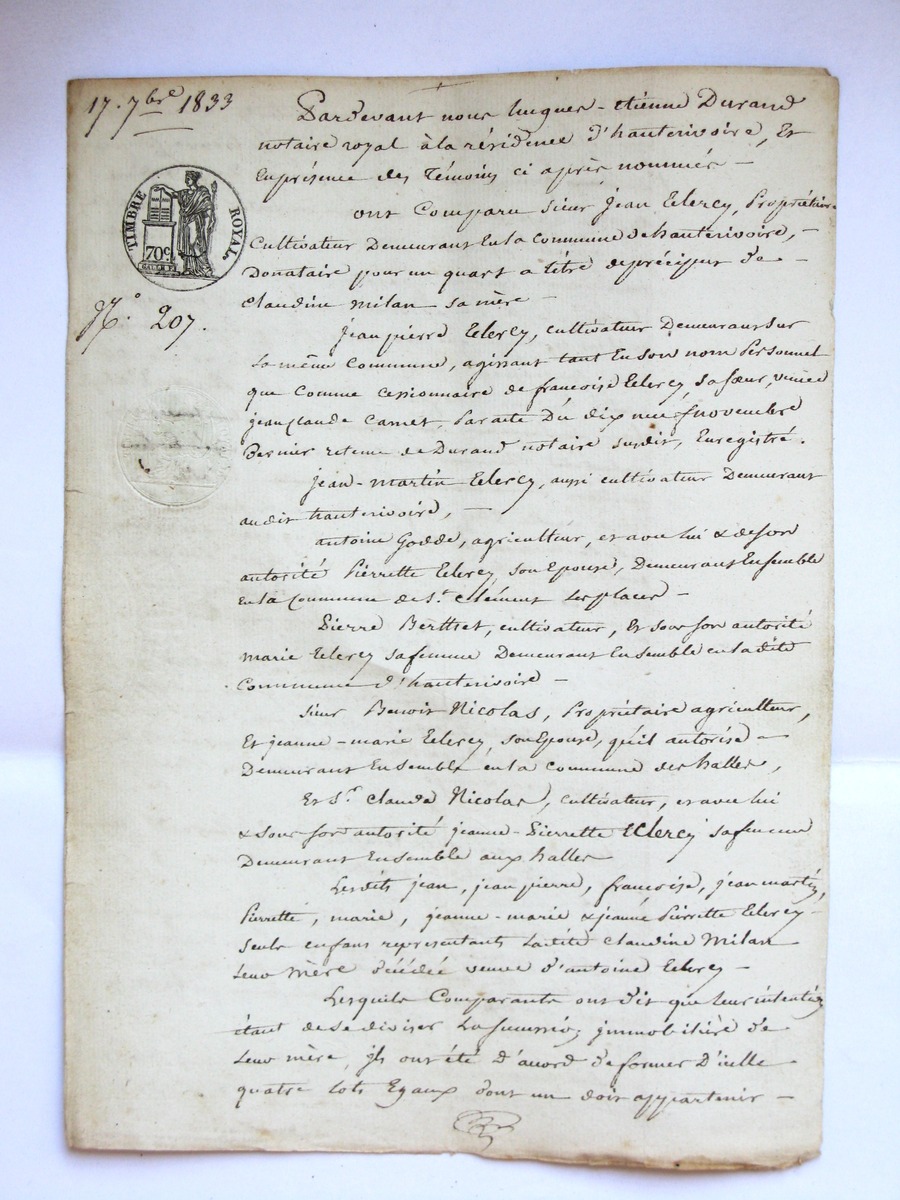 17. 7bre 1833
TIMBRE ROYAL
70c.
N.° 207.
Pardevant nous hugues-etienne Durand
notaire royal à la résidence d'hauterivoire, Et
En présence des Témoins ci après nommés —
ont Comparu Sieur Jean Eclercy, Propriétaire
Cultivateur Demeurant En la Commune de hauterivoire, —
Donataire pour un quart a titre de préciput de —
Claudine milan sa mère —
Jean pierre Eclercy, cultivateur Demeurant sur
la même Commune, agissant tant En son nom Personnel
que Comme Cessionnaire de françoise Eclercy, sa sœur, veuve
jean Claude Carret, Par acte Du dix neuf novembre
Dernier retenu de Durand notaire susdit, Enregistré.
jean-martin Eclercy, aussi cultivateur Demeurant
audit hauterivoire, —
antoine Godde, agriculteur, et avec lui & de son
autorité Pierrette Eclercy, son Epouse, Demeurant Ensemble
En la Commune de St. Clément les places —
Pierre Berthet, cultivateur, Et sous son autorité
marie Eclercy sa femme Demeurant Ensemble en la dite
Commune d'hauterivoire —
Sieur Benoit Nicolas, Propriétaire agriculteur,
Et jeanne-marie Eclercy, son Epouse, qu'il autorise —
Demeurant Ensemble en la Commune des halles,
Et Sr. Claude Nicolas, cultivateur, et avec lui
& sous son autorité jeanne-Pierrette Eclercy sa femme
Demeurant Ensemble aux halles
Lesdits jean, jean pierre, françoise, jean martin,
Pierrette, marie, jeanne-marie & jeanne Pierrette Eclercy —
seuls enfans représentants ladite Claudine Milan
leur Mère décédée veuve d'antoine Eclercy —
Lesquels Comparants ont dit que leur intention
étant de se diviser La succession immobilière de
leur mère, ils ont été d'accord de former D'icelle
quatre lots Egaux dont un doit appartenir —